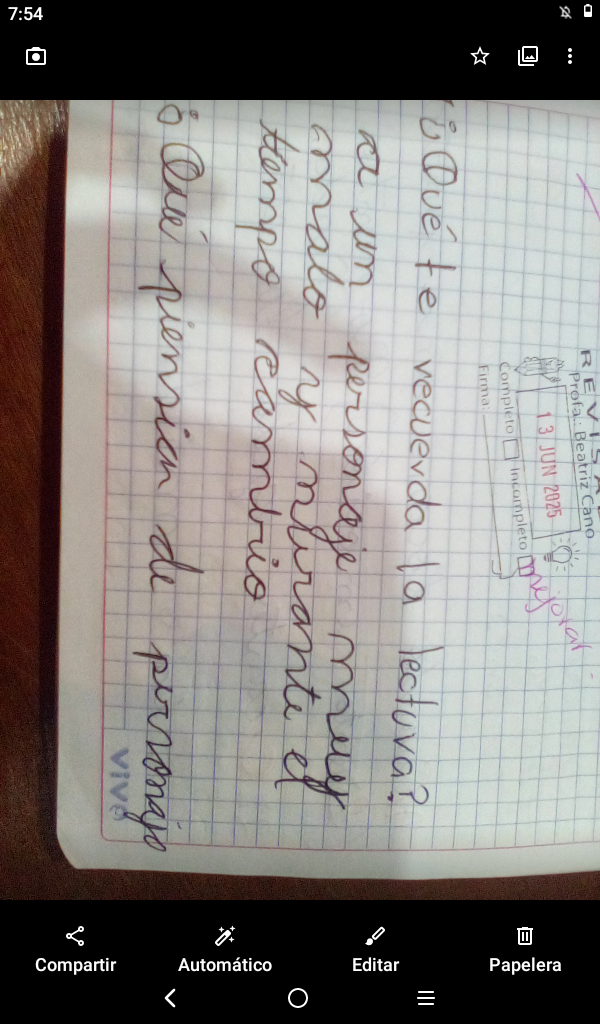 7:54
REVISA
Profa.: Beatriz Cano
13 JUN 2025
Completo Incompleto
Firma:
mejorar
¿Qué te recuerda la lectura?
a un personaje muy
malo y murante el
tiempo cambio
¿Qué piensan de personaje
vive
Compartir Automático Editar Papelera